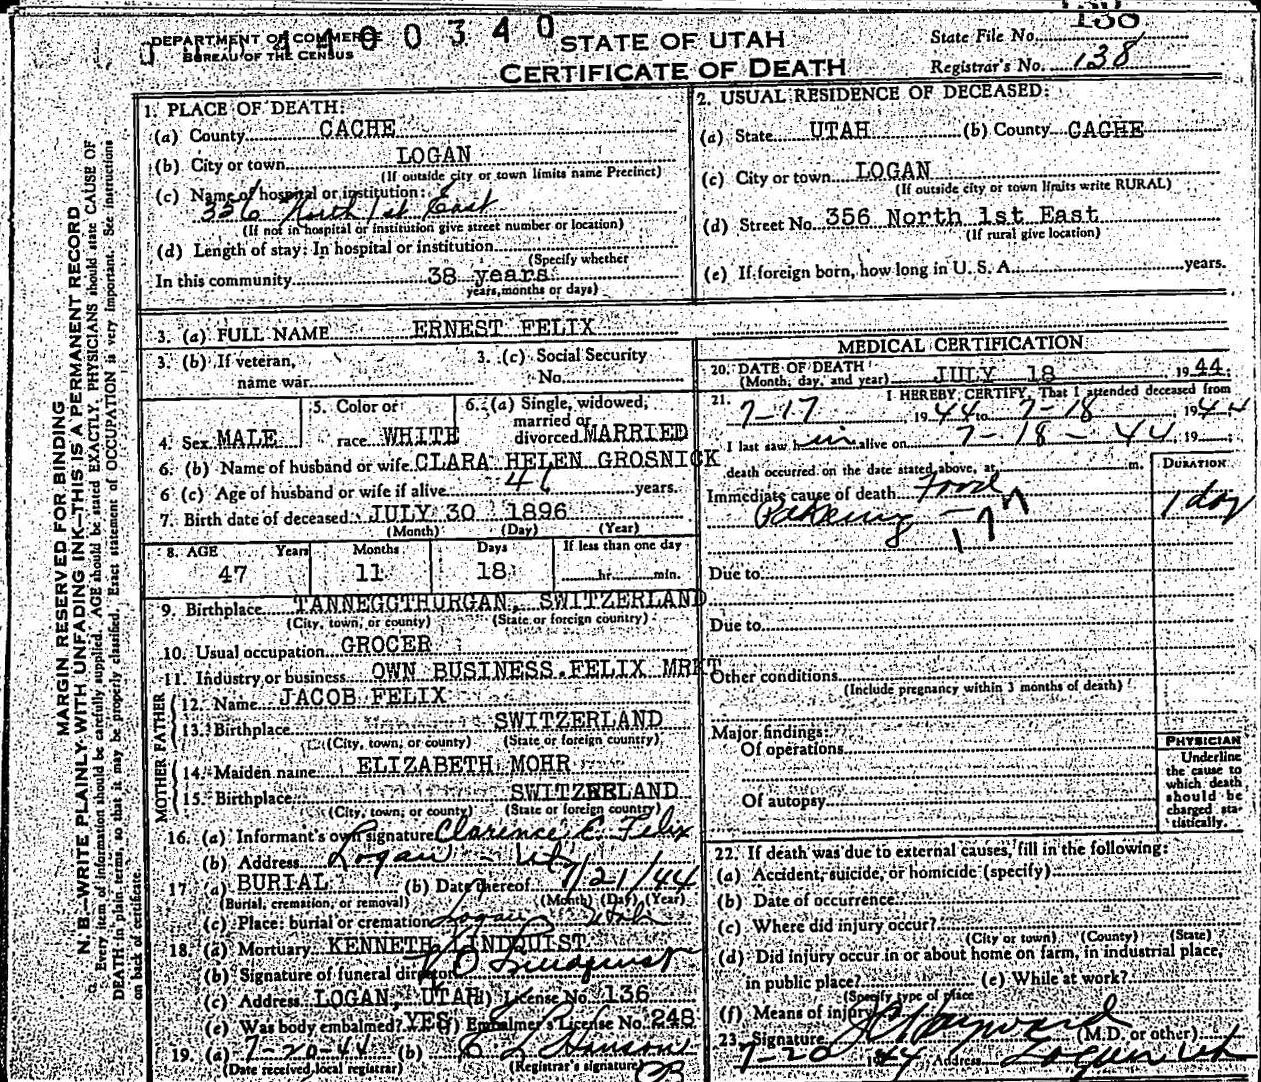 138
DEPARTMENT OF COMMERCE
BUREAU OF THE CENSUS
4 4 0 0 3 4 0
STATE OF UTAH
CERTIFICATE OF DEATH
State File No.
Registrar's No. 138
MARGIN RESERVED FOR BINDING
N. B.—WRITE PLAINLY WITH UNFADING INK—THIS IS A PERMANENT RECORD
Every item of information should be carefully supplied. AGE should be stated EXACTLY. PHYSICIANS should state CAUSE OF
DEATH in plain terms, so that it may be properly classified. Exact statement of OCCUPATION is very important. See instructions
on back of certificate.
1. PLACE OF DEATH:
(a) County CACHE
(b) City or town LOGAN
(If outside city or town limits name Precinct)
(c) Name of hospital or institution:
356 North 1st East
(If not in hospital or institution give street number or location)
(d) Length of stay: In hospital or institution
(Specify whether
In this community 38 years
years, months or days)
2. USUAL RESIDENCE OF DECEASED:
(a) State UTAH (b) County CACHE
(c) City or town LOGAN
(If outside city or town limits write RURAL)
(d) Street No. 356 North 1st East
(If rural give location)
(e) If foreign born, how long in U. S. A. years.
3. (a) FULL NAME ERNEST FELIX
3. (b) If veteran,
name war
3. (c) Social Security
No.
4. Sex MALE
5. Color or
race WHITE
6. (a) Single, widowed,
married or
divorced MARRIED
6. (b) Name of husband or wife CLARA HELEN GROSNICK
6 (c) Age of husband or wife if alive years.
7. Birth date of deceased JULY 30 1896
(Month) (Day) (Year)
8. AGE Years Months Days If less than one day
47 11 18 hr. min.
9. Birthplace TANNEGGTHURGAN, SWITZERLAND
(City, town, or county) (State or foreign country)
10. Usual occupation GROCER
11. Industry or business OWN BUSINESS.FELIX MRKT
FATHER
12. Name JACOB FELIX
13. Birthplace SWITZERLAND
(City, town, or county) (State or foreign country)
MOTHER
14. Maiden name ELIZABETH MOHR
15. Birthplace SWITZERLAND
(City, town, or county) (State or foreign country)
16. (a) Informant's own signature Clarence E. Felix
(b) Address Logan - Utah
17 (a) BURIAL (b) Date thereof 7/21/44
(Burial, cremation, or removal) (Month) (Day) (Year)
(c) Place: burial or cremation Logan Utah
18. (a) Mortuary KENNETH LINDQUIST
(b) Signature of funeral director Lindquist
(c) Address LOGAN, UTAH (d) License No. 136
(e) Was body embalmed? YES (f) Embalmer's License No. 248
19. (a) 7-20-44 (b) Hanson
(Date received local registrar) (Registrar's signature)
MEDICAL CERTIFICATION
20. DATE OF DEATH
(Month, day, and year) JULY 18 1944
21. I HEREBY CERTIFY, That I attended deceased from
7-17 1944 to 7-18, 1944
I last saw him alive on 7-18-44, 19
death occurred on the date stated above, at m.
DURATION
Immediate cause of death Food 1 day
Due to
Due to
Other conditions
(Include pregnancy within 3 months of death)
Major findings:
Of operations
Of autopsy
PHYSICIAN
Underline
the cause to
which death
should be
charged sta-
tistically.
22. If death was due to external causes, fill in the following:
(a) Accident, suicide, or homicide (specify)
(b) Date of occurrence
(c) Where did injury occur?
(City or town) (County) (State)
(d) Did injury occur in or about home on farm, in industrial place,
in public place? (e) While at work?
(Specify type of place
(f) Means of injury
23. Signature Hayward (M.D. or other)
7-20 1944 Address Logan Utah